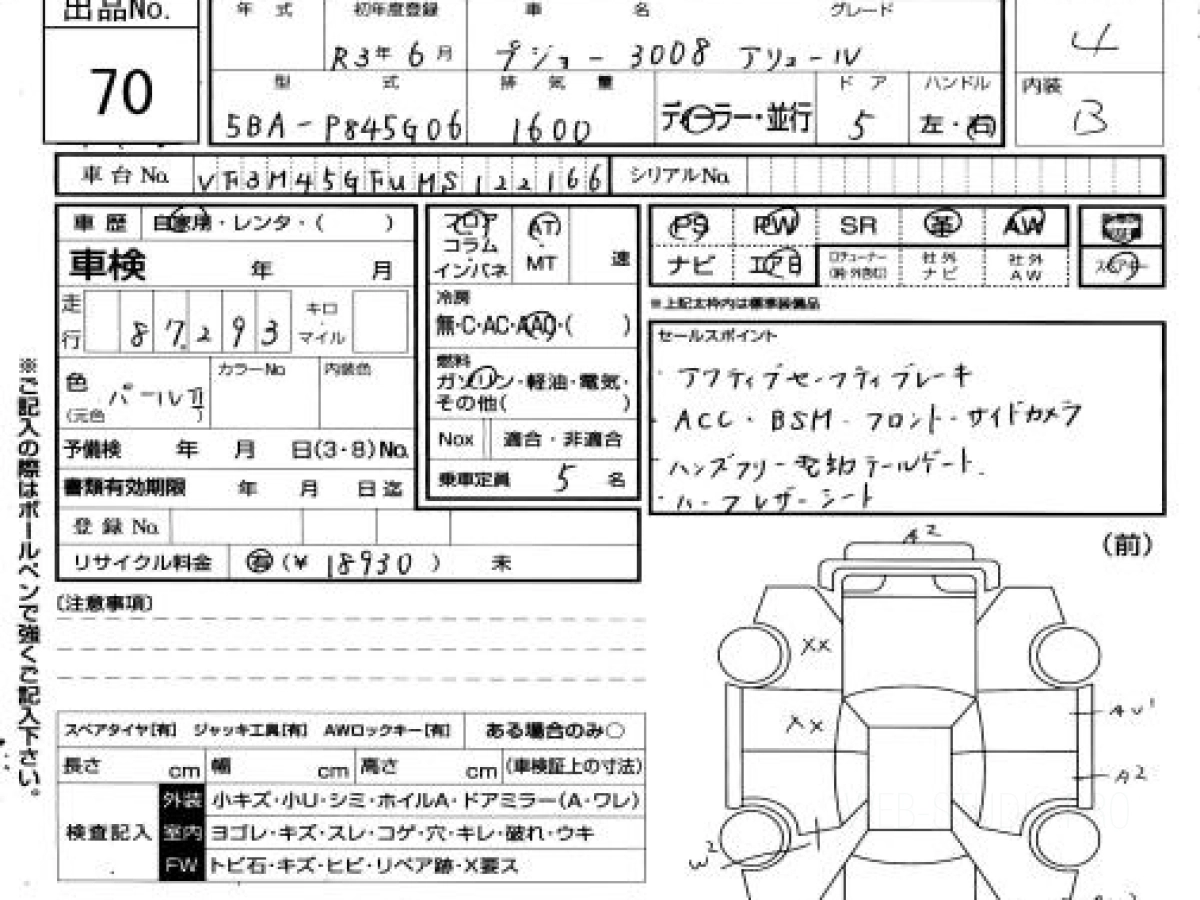 出品No.
70
年 式 初年度登録 車 名 グレード
R3年 6月 プジョー 3008 アリュール 4
型 式 排 気 量 ドア ハンドル 内装
5BA-P845G06 1600 ディーラー・並行 5 左・右 B
車台No. VF3M45GFUMS122166 シリアルNo.
車歴 自家用・レンタ・( )
車検 年 月
走行 87,293 キロ・マイル
色 パールII カラーNo. 内装色
(元色 )
予備検 年 月 日(3・8)No.
書類有効期限 年 月 日迄
登録No.
リサイクル料金 有(¥ 18930 ) 未
フロア AT
コラム
インパネ MT 速
冷房
無・C・AC・AAC・( )
燃料
ガソリン・軽油・電気・
その他( )
Nox 適合・非適合
乗車定員 5 名
PS PW SR 革 AW
ナビ エアB 社外ナビ 社外AW スペアキー
※上記太枠内は標準装備品
セールスポイント
・アクティブセーフティブレーキ
・ACC・BSM・フロント・サイドカメラ
・ハンズフリー電動テールゲート.
・ハーフレザーシート
※ご記入の際はボールペンで強くご記入下さい。
〔注意事項〕
スペアタイヤ[有] ジャッキ工具[有] AWロックキー[有] ある場合のみ○
長さ cm 幅 cm 高さ cm (車検証上の寸法)
検査記入
外装 小キズ・小U・シミ・ホイルA・ドアミラー(A・ワレ)
室内 ヨゴレ・キズ・スレ・コゲ・穴・キレ・破れ・ウキ
FW トビ石・キズ・ヒビ・リペア跡・X要ス
(前)
A2
XX
XX
AU1
A2
W2